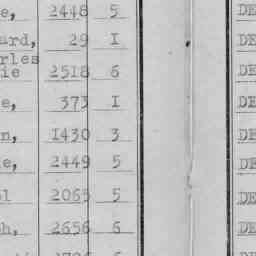 e, 2448 5 DE
ard, 29 I DE
arles
ie 2518 6 DE
e, 373 I DE
n, 1430 3 DE
e, 2449 5 DE
l 2065 5 DE
h, 2656 6 DE